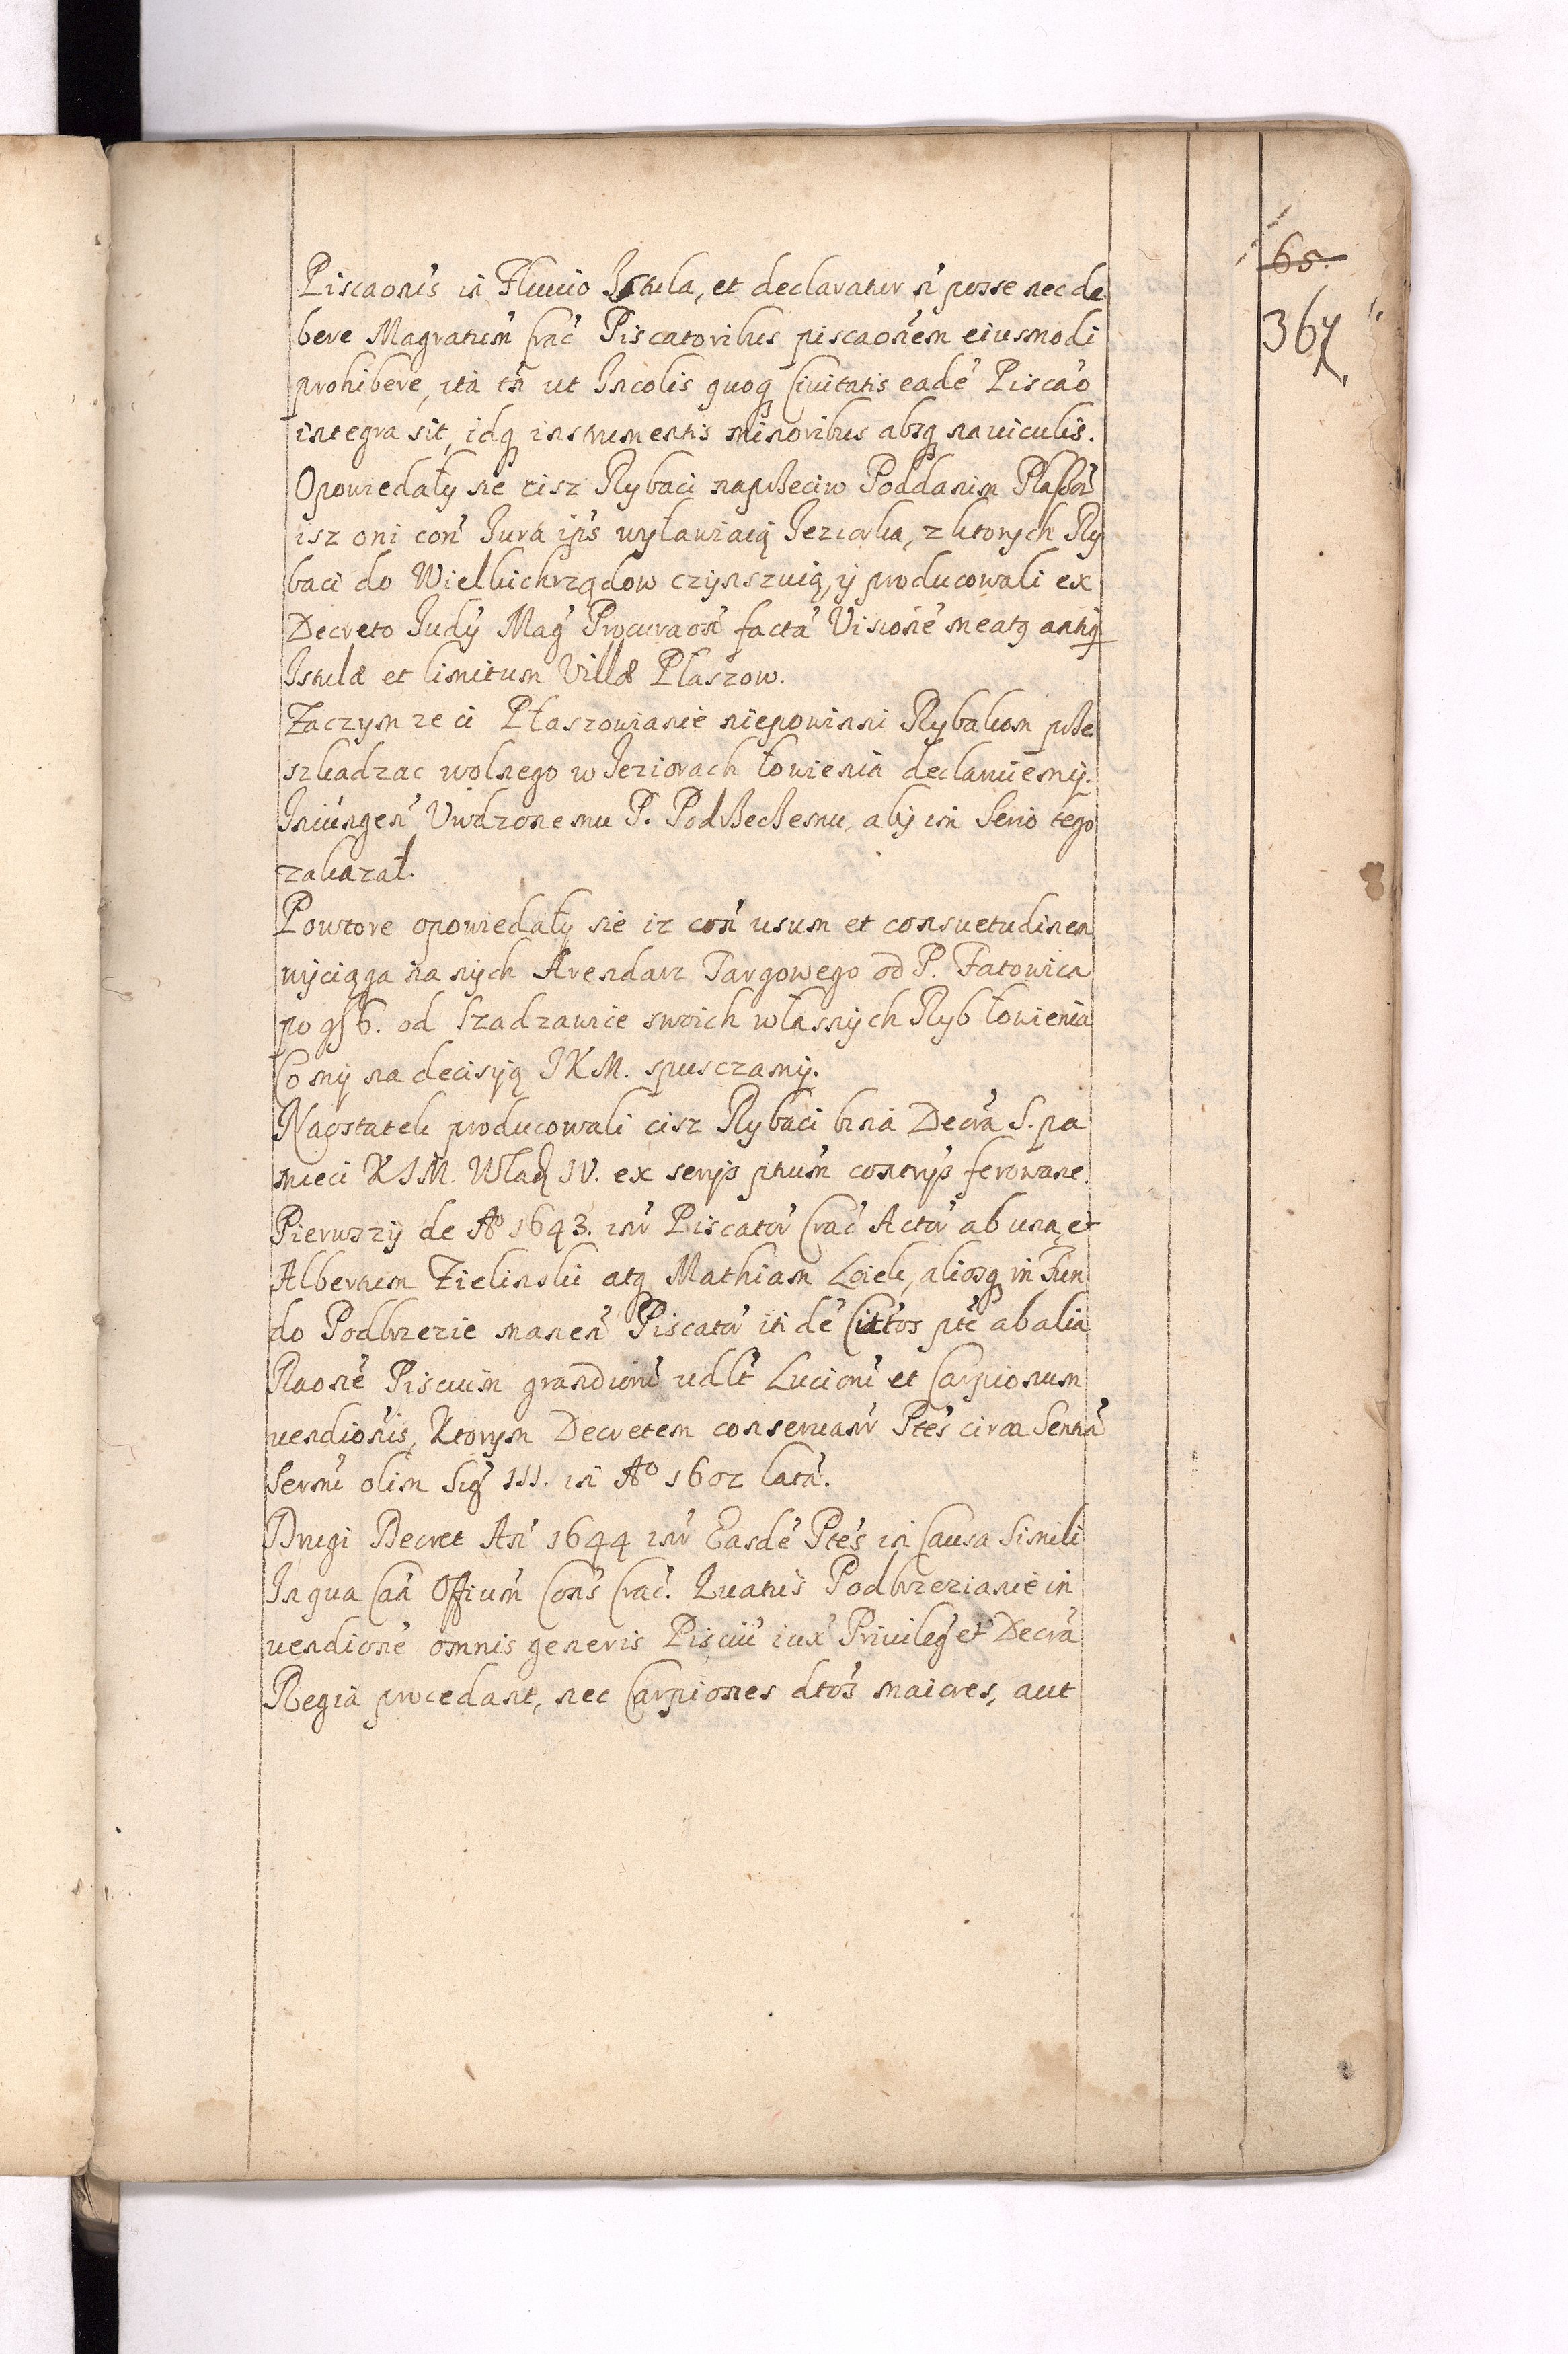 65.
367
Piscaoni's in Fluuio Istula, et declaratur n' posse nec de
bere Magratum Crac' Piscatoribus piscaonem eiusmodi
prohibere, ita tn ut Incolis quoq Ciuitatis eade' Piscao
integra sit, idq instrumentis minoribus absq nauiculis.
Opowiedały sie cisz Rybaci naprzeciw Poddanim
isz oni con' Jura ips wyławiaią Jeziorka, z ktorych Ry
baci do Wielkichrządow czynszuią, ÿ producowali ex
Decreto Judÿ Mag' Procuraon' facta' Visione' meatq antiq
Istulæ et limitum Villæ Plaszow.
Zaczym ze ci Płaszowianie niepowinni Rybakom prze
szkadzac wolnego w Jeziorach łowienia declaruiemÿ.
Iniungen' Vwdzonemu P. Podrzeczemu, abÿ im Serio tego
zakazał.
Powtore opowiedały sie iz con' usum et consuetudinem
wÿciąga na nÿch Arendarz Targowego od P. Fatowica
po g 6. od Szadzawice swoich własnÿch Ryb łowienia
Co mÿ na decisÿą JKM. spusczamÿ.
Naostatek producowali cisz Rybaci bina Decra S. pa
mieci KJM. Wład IV. ex serÿs ptium contrÿs ferowane.
Pierwszÿ de Aº 1643. int' Piscator' Crac' Actor' ab una, et
Albertum Zielinski atq Mathiam Lciek, aliosq in Fun
do Podbrzezie manen' Piscator' iti de' Cittos pte' ab alia
Raone' Piscium grandium' udlt' Lucionu' et Carpionum
uendionis, Ktorym Decretem conseruanr Ptes circa Sentia'
Sermi olim Sig' III. in Aº 1602 lata'.
Drugi Decret An' 1644 int' Easde' Ptes in Causa Simili
In qua Caa Offium Cons' Crac'. Luatus Podbrzezianie in
uendione omnis generis Pisciu' iux' Privileg' et Decra
Regia procedant, nec Carpiones dtos maiores, aut